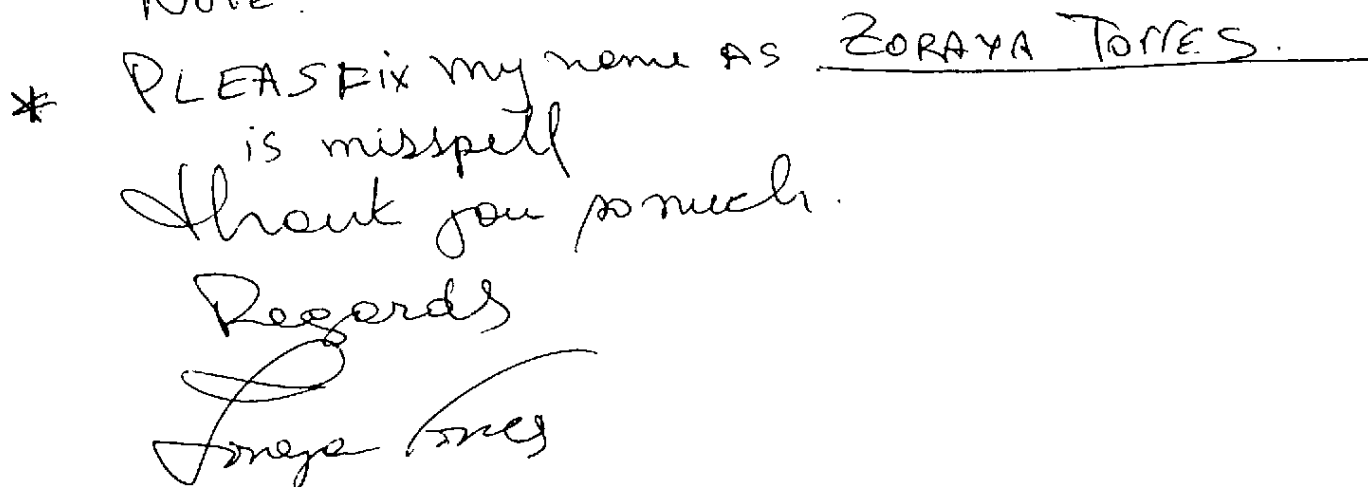 Note:
* PLEAS FIX my name AS ZORAYA TORRES.
is misspell
thank you so much.
Regards
Zoraya Torres